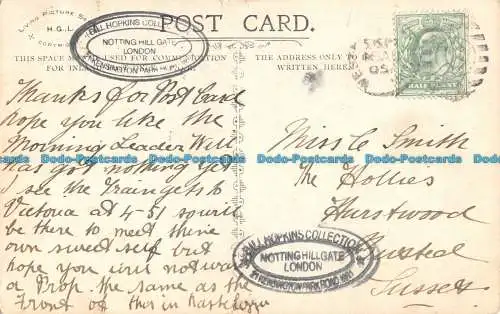 LIVING PICTURE SE
H.G.L.
COPYRI
POST CARD.
BILL HOPKINS COLLECTION
NOTTING HILL GATE
LONDON
KENSINGTON PARK
THIS SPACE MAY BE USED FOR COMMUNICATION
FOR INLAND
THE ADDRESS ONLY TO BE
WRITTEN HERE.
HALF PENNY
Thanks for Post Card
hope you like the
Morning Leader Will
has got nothing yet
see the train gets to
Victoria at 4-51 so will
be there to meet
own sweet self but
hope you will not
a Prop the same as the
Front of this in
Miss C Smith
The Hollies
Hurstwood
Buxted
Sussex
BILL HOPKINS COLLECTION
NOTTING HILL GATE
LONDON
KENSINGTON PARK ROAD, W11
Dodo-Postcards Dodo-Postcards Dodo-Postcards Dodo-Postcards Dodo-Postcards